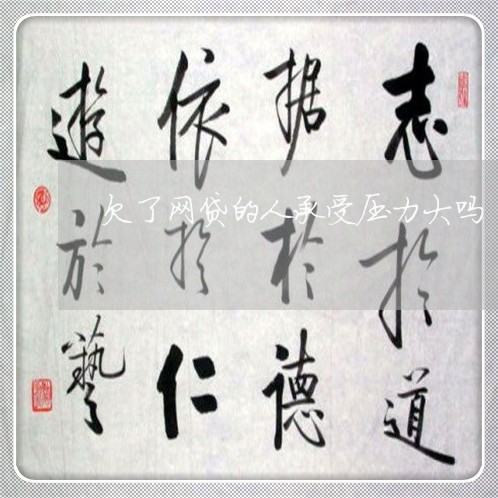 志扵道
据於德
依扵仁
遊於藝
欠了网贷的人承受压力大吗